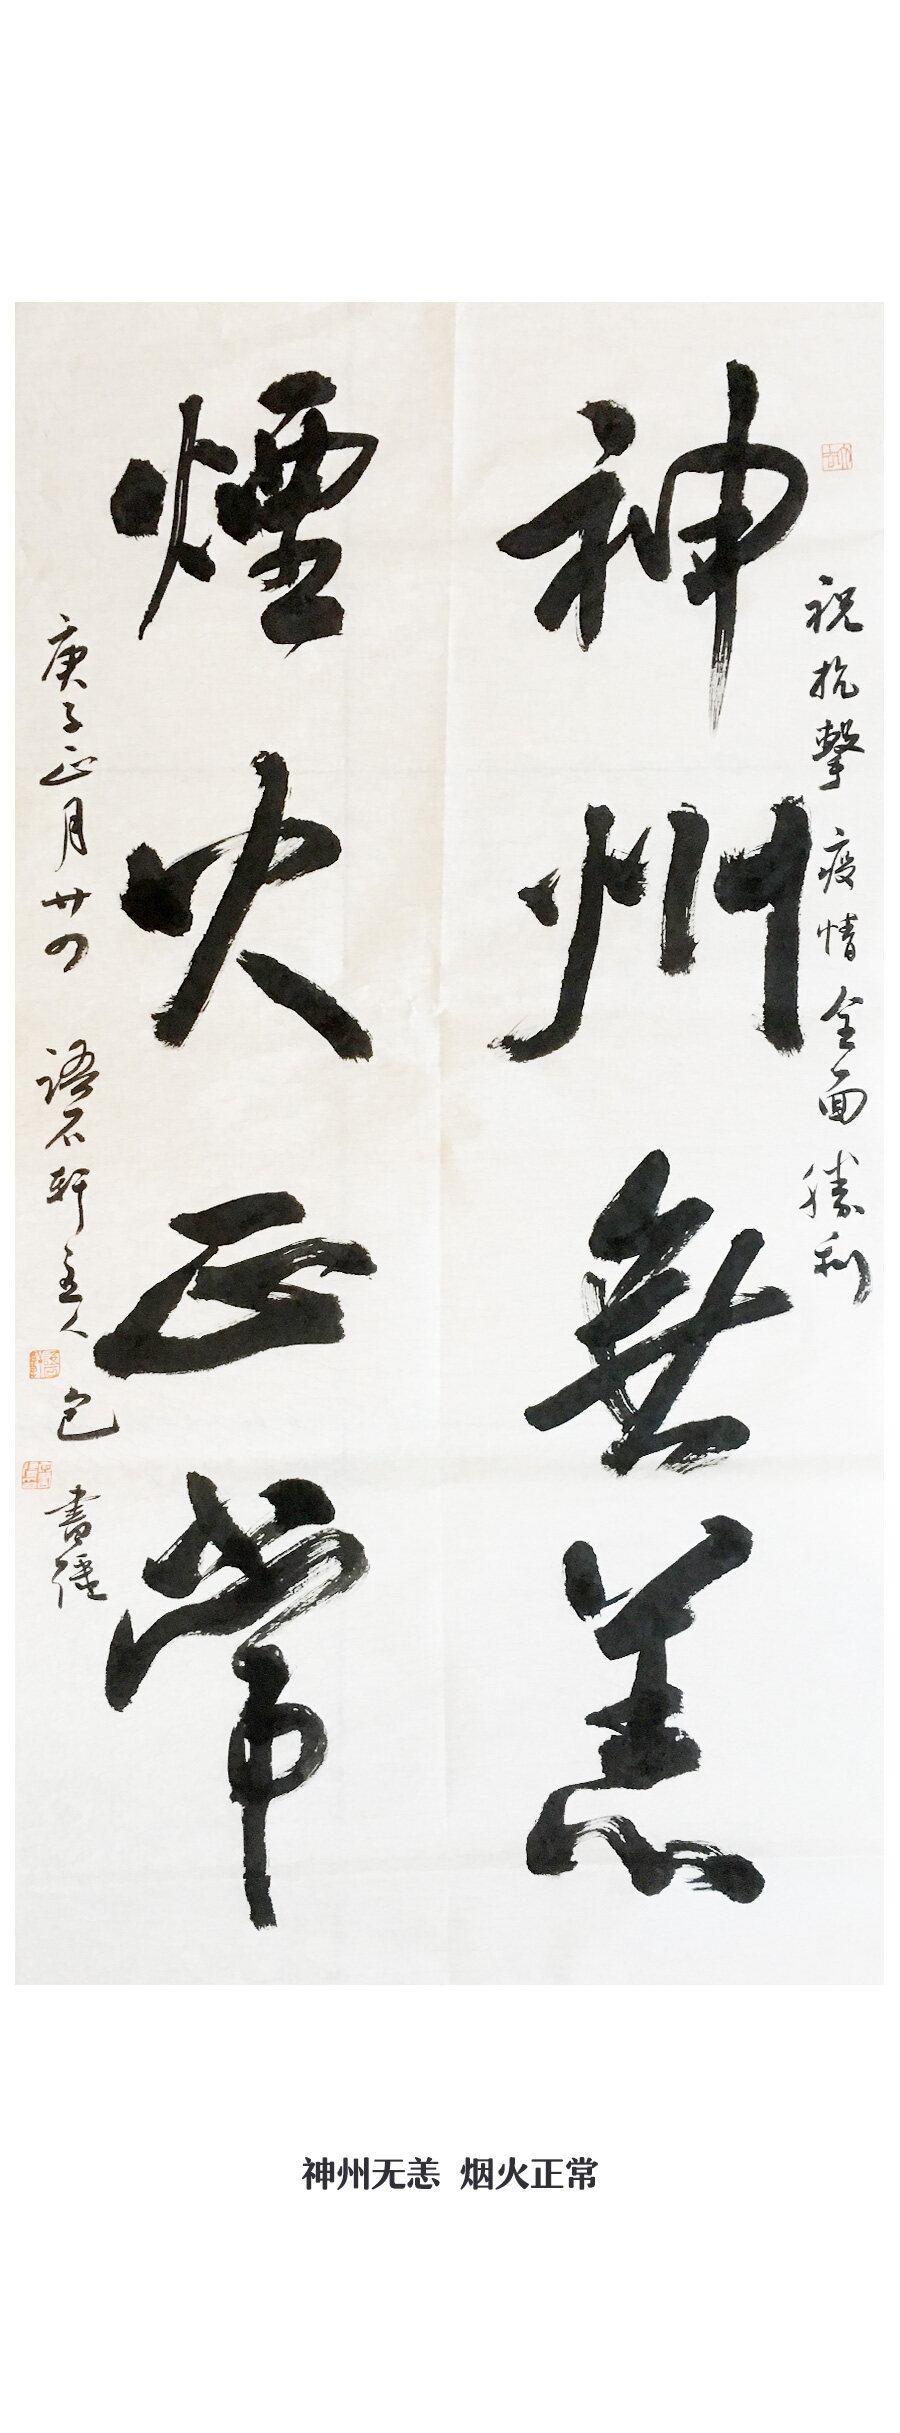 祝抗擊疫情全面勝利
神州無恙
煙火正常
庚子正月廿四 語石軒主人 包 書強
神州无恙 烟火正常